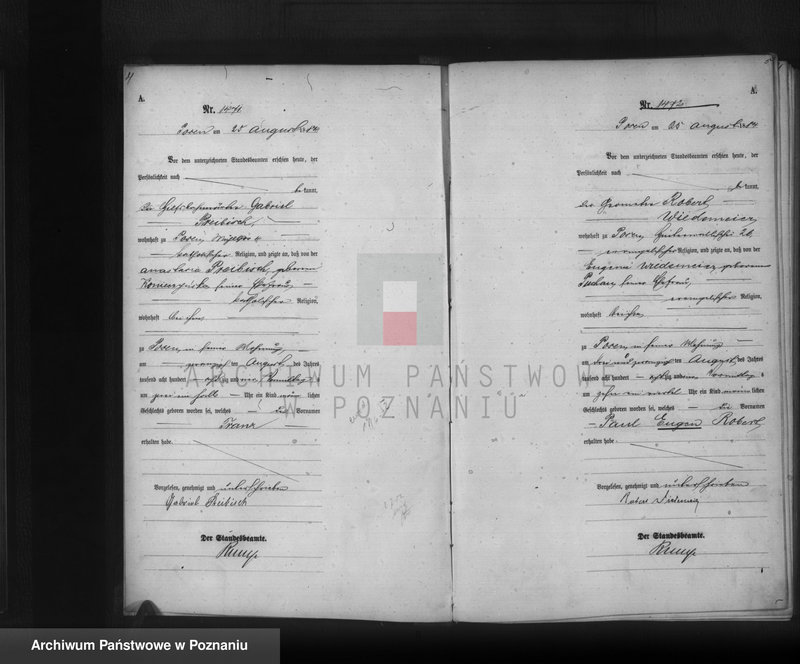 A.
Nr. 1471
Posen am 25 August 1884
Vor dem unterzeichneten Standesbeamten erschien heute, der
Persönlichkeit nach
bekannt,
der Gabriel
Preibisch,
wohnhaft zu Posen,
katholischer Religion, und zeigte an, daß von der
Anastasia Preibisch, geborenen
seiner Ehefrau,
katholischer Religion,
wohnhaft bei ihm,
zu Posen, in seiner Wohnung
am zwanzigsten August des Jahres
tausend acht hundert achtzig und vier Vormittags
um zwei ein halb Uhr ein Kind männlichen
Geschlechts geboren worden sei, welches die Vornamen
Franz
erhalten habe.
Vorgelesen, genehmigt und unterschrieben
Gabriel Preibisch
Der Standesbeamte.
A.
Nr. 1472
Posen am 25 August 1884
Vor dem unterzeichneten Standesbeamten erschien heute, der
Persönlichkeit nach
bekannt,
der Geometer Robert
Wiedemeier,
wohnhaft zu Posen, 26,
evangelischer Religion, und zeigte an, daß von der
Eugenie Wiedemeier, geborenen
seiner Ehefrau,
evangelischer Religion,
wohnhaft bei ihm,
zu Posen, in seiner Wohnung
am drei und zwanzigsten August des Jahres
tausend acht hundert achtzig und vier Vormittags
um zehn ein viertel Uhr ein Kind männlichen
Geschlechts geboren worden sei, welches die Vornamen
Paul Eugen Robert
erhalten habe.
Vorgelesen, genehmigt und unterschrieben
Robert
Der Standesbeamte.
ARCHIWUM PAŃSTWOWE
W POZNANIU
Archiwum Państwowe w Poznaniu